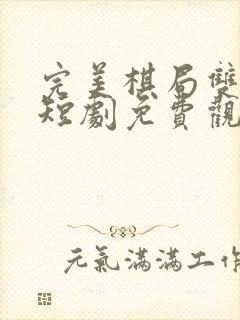 完美棋局雙
短劇免費觀
元氣滿滿工作